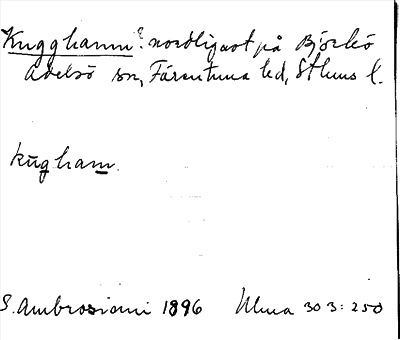 Kugghamn? nordligast på Björkö
Adelsö sn, Färentuna hd, Sthlms l.
kūgham
S. Ambrosiani 1896 Ulma 303:250